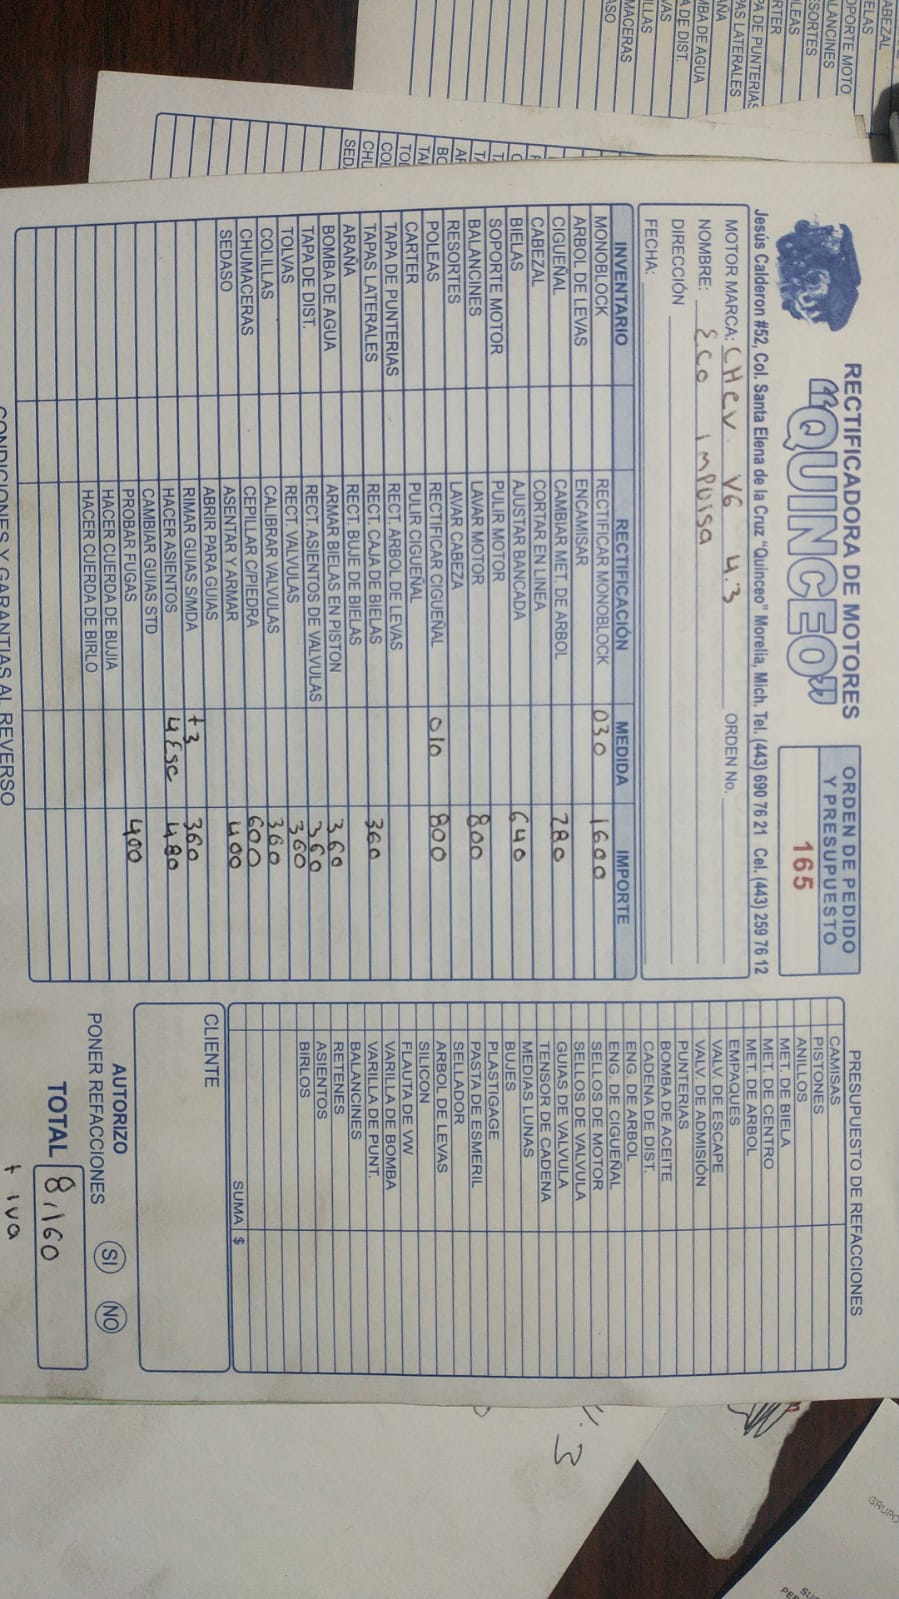 RECTIFICADORA DE MOTORES
"QUINCEO"
ORDEN DE PEDIDO
Y PRESUPUESTO
165
Jesús Calderon #52, Col. Santa Elena de la Cruz "Quinceo" Morelia, Mich. Tel. (443) 690 76 21 Cel. (443) 259 76 12
MOTOR MARCA: CHEV V6 4.3 ORDEN No.
NOMBRE: ECO IMPULSA
DIRECCIÓN
FECHA:
INVENTARIO RECTIFICACIÓN MEDIDA IMPORTE
MONOBLOCK RECTIFICAR MONOBLOCK 030 1600
ARBOL DE LEVAS ENCAMISAR
CIGUEÑAL CAMBIAR MET. DE ARBOL 280
CABEZAL CORTAR EN LINEA
BIELAS AJUSTAR BANCADA 640
SOPORTE MOTOR PULIR MOTOR
BALANCINES LAVAR MOTOR 800
RESORTES LAVAR CABEZA
POLEAS RECTIFICAR CIGUEÑAL 010 800
CARTER PULIR CIGUEÑAL
TAPA DE PUNTERIAS RECT. ARBOL DE LEVAS
TAPAS LATERALES RECT. CAJA DE BIELAS 360
ARAÑA RECT. BUJE DE BIELAS
BOMBA DE AGUA ARMAR BIELAS EN PISTON 360
TAPA DE DIST. RECT. ASIENTOS DE VALVULAS 360
TOLVAS RECT. VALVULAS 360
COLILLAS CALIBRAR VALVULAS 360
CHUMACERAS CEPILLAR C/PIEDRA 600
SEDASO ASENTAR Y ARMAR 400
ABRIR PARA GUIAS
RIMAR GUIAS S/MDA +3 360
HACER ASIENTOS 4 Esc 480
CAMBIAR GUIAS STD
PROBAR FUGAS 400
HACER CUERDA DE BUJIA
HACER CUERDA DE BIRLO
CONDICIONES Y GARANTIAS AL REVERSO
PRESUPUESTO DE REFACCIONES
CAMISAS
PISTONES
ANILLOS
MET. DE BIELA
MET. DE CENTRO
MET. DE ARBOL
EMPAQUES
VALV. DE ESCAPE
VALV. DE ADMISIÓN
PUNTERIAS
BOMBA DE ACEITE
CADENA DE DIST.
ENG. DE ARBOL
ENG. DE CIGUEÑAL
SELLOS DE MOTOR
SELLOS DE VALVULA
GUIAS DE VALVULA
TENSOR DE CADENA
MEDIAS LUNAS
BUJES
PLASTIGAGE
PASTA DE ESMERIL
SELLADOR
ARBOL DE LEVAS
SILICON
FLAUTA DE VW
VARILLA DE BOMBA
VARILLA DE PUNT.
BALANCINES
RETENES
ASIENTOS
BIRLOS
SUMA $
CLIENTE
AUTORIZO
PONER REFACCIONES SI NO
TOTAL 8,160
+ iva